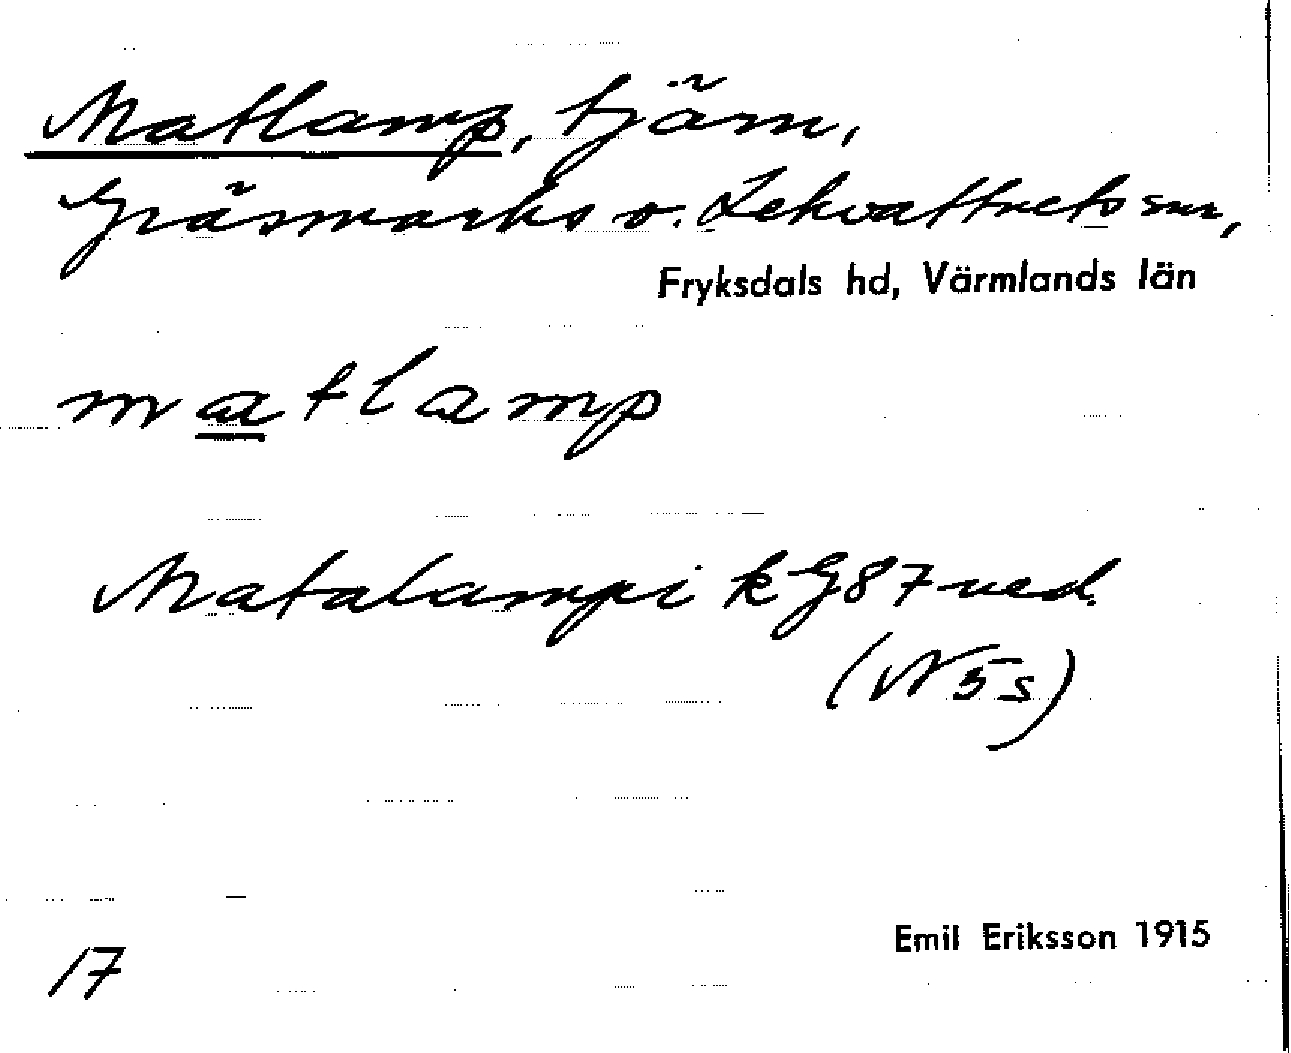 Matlamp, tjärn,
Gräsmarks o. Lekvattnets snr,
Fryksdals hd, Värmlands län
matlamp
Matalampi k G87 ned.
(N5s)
Emil Eriksson 1915
17